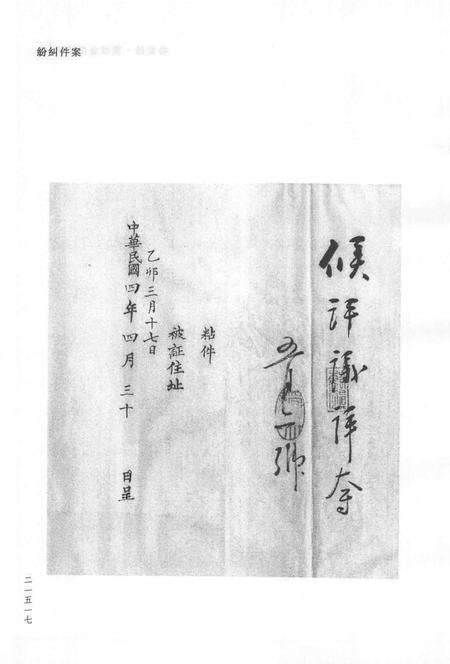 紛糾件案
候評議評奪
五月一號
粘件
被証住址
乙卯三月十七日
中華民國四年四月三十日呈
二一五一七